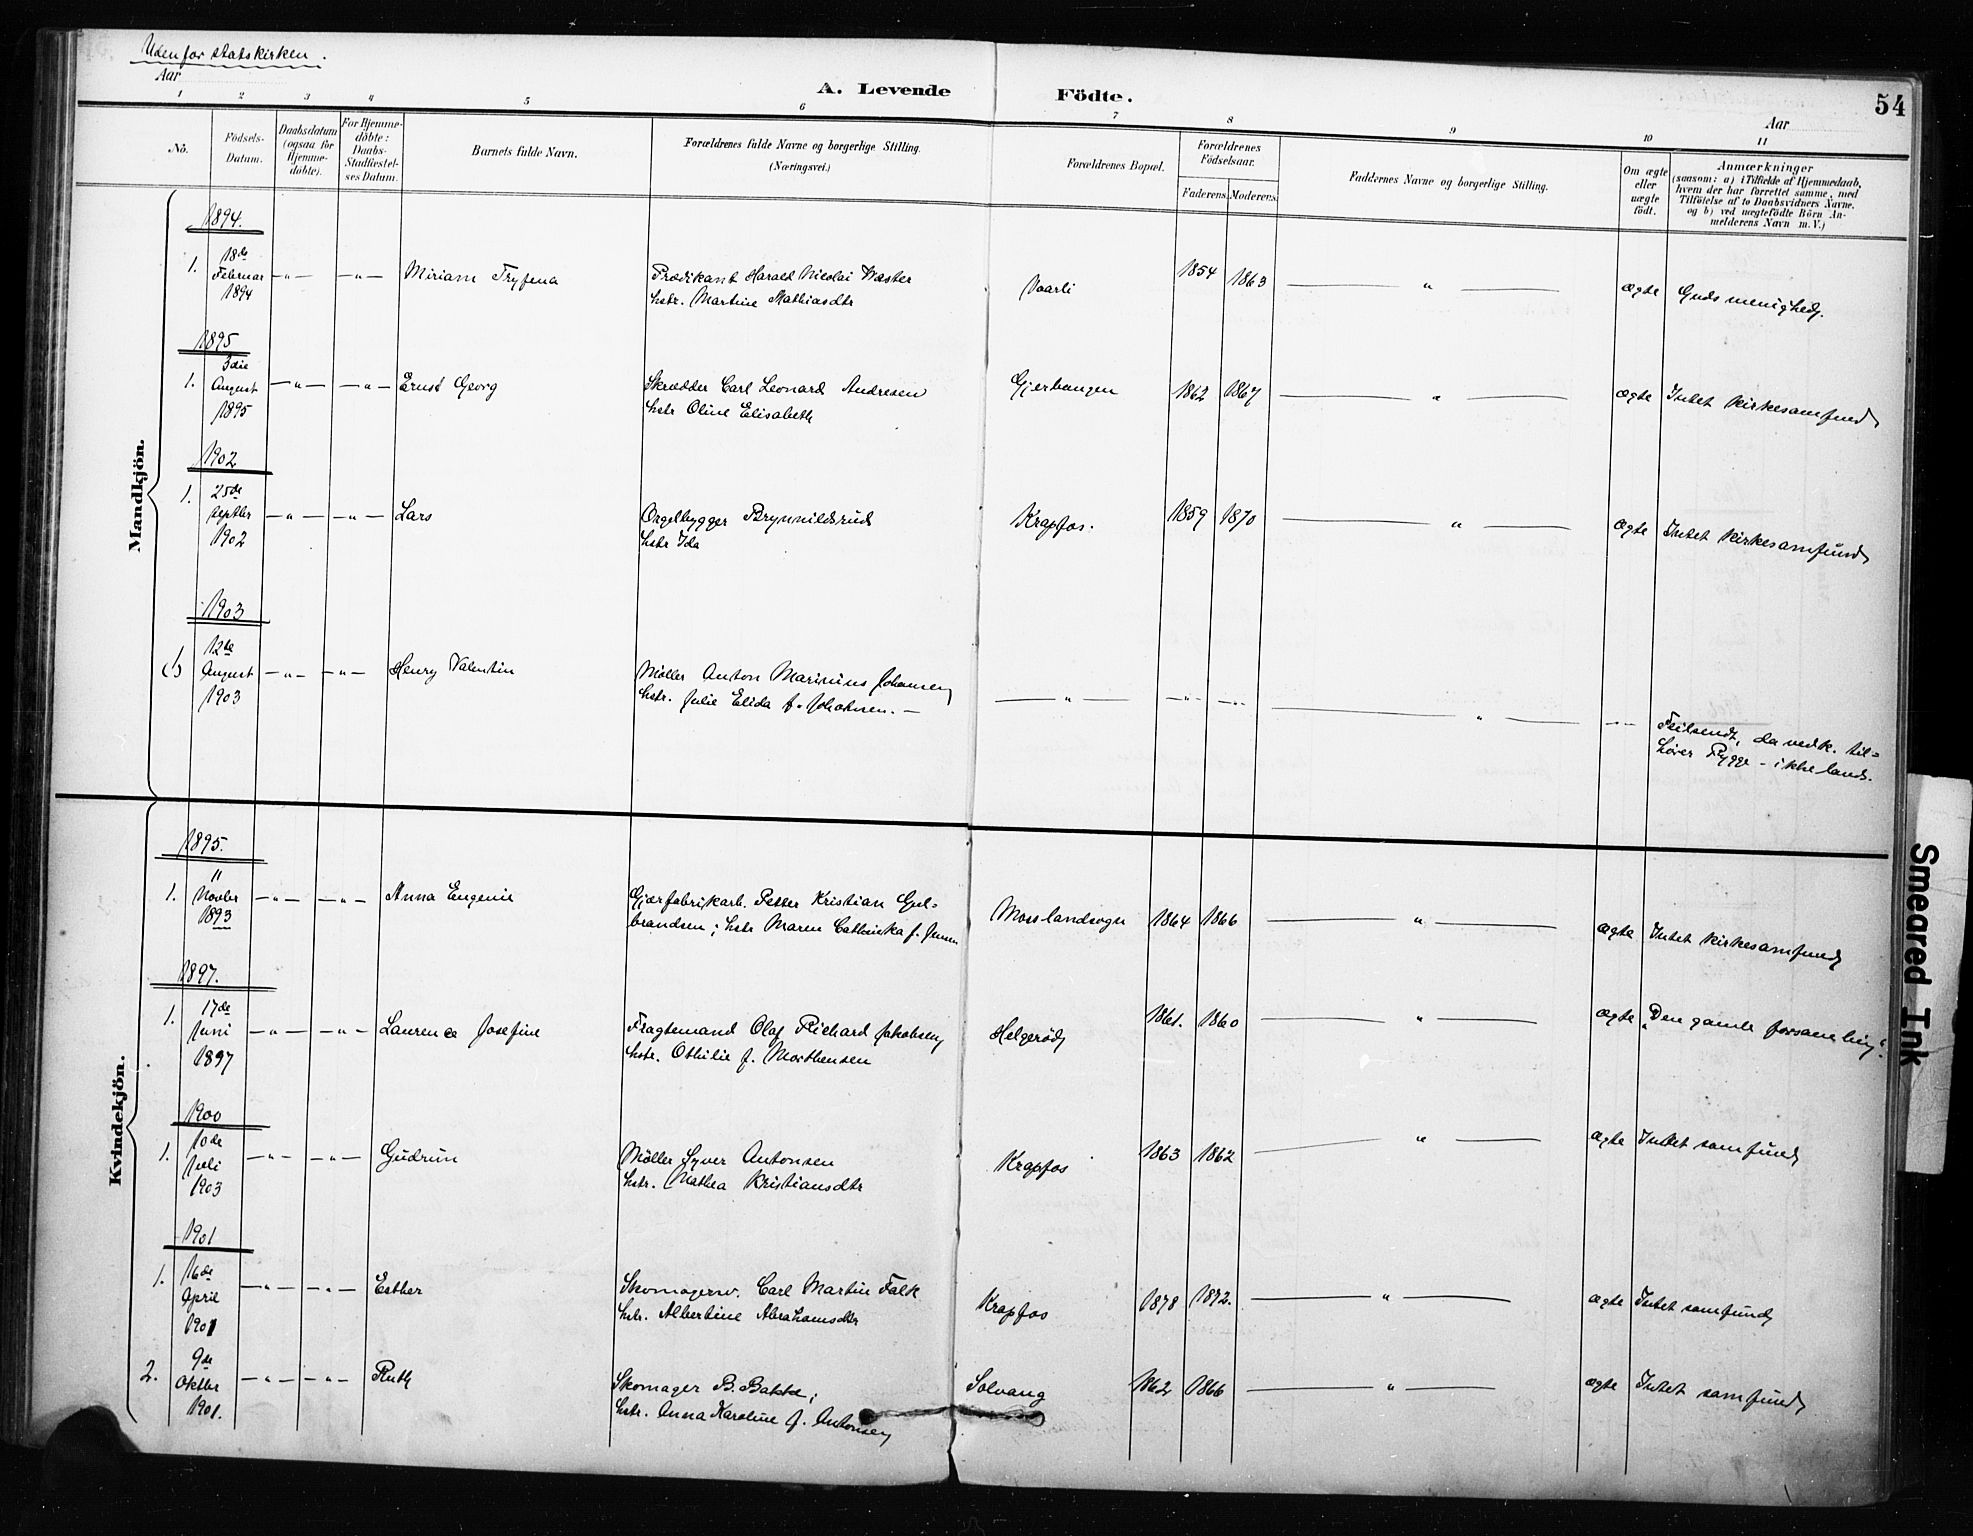 Udenfor statskirken.
Aar
A. Levende Födte.
54
Aar
1 2 3 4 5 6 7 8 9 10 11
No.
Födsels-Datum.
Daabsdatum (ogsaa for Hjemme-döbte).
For Hjemme-döbte: Daabs-Stadfæstel-ses Datum.
Barnets fulde Navn.
Forældrenes fulde Navne og borgerlige Stilling. (Næringsvei.)
Forældrenes Bopæl.
Forældrenes Födselsaar.
Faderens. Moderens.
Faddernes Navne og borgerlige Stilling.
Om ægte eller uægte födt.
Anmærkninger
(saasom: a) i Tilfælde af Hjemmedaab,
hvem der har forrettet samme, med
Tilföielse af to Daabsvidners Navne.
og b) ved uægtefödte Börn An-
melderens Navn m. V.)
Mandkjön.
1894.
1. 18de Februar 1894 — " — — " — Miriam Tryfena
Prædikant Harald Nicolai Wæster
hstr. Martine Mathiasdtr
Vaarli 1854 1863 — " — ægte Guds menighed.
1895
1. 3die August 1895 — " — — " — Ernst Georg
Skrædder Carl Leonard Andresen
hstr Oline Elisabeth
Gjerhaugen 1862 1867 — " — ægte Intet kirkesamfund
1902
1. 25de septbr 1902 — " — — " — Lars
Orgelbygger Brynnildsrud
hstr Ida
Krapfos. 1859 1870 — " — ægte Intet kirkesamfund
1903
(1) 12te August 1903 — " — — " — Henry Valentin
Møller Anton Marinius Johansen
hstr. Julie Elida f. Johansen. —
— " — — " — — " — — " — — " —
Feilsendt, da vedk. til=
hører Rygge - ikke lands.
Kvindekjön.
1895.
1. 11 Novbr 1893 — " — — " — Anna Eugenie
Gjærfabrikarb. Petter Kristian Gul=
brandsen; hstr Maren Cathinka f. Jensen
Mosslandsogn 1864 1866 — " — ægte Intet kirkesamfund
1897.
1. 17de Juni 1897 — " — — " — Laurence Josefine
Fragtemand Olaf Richard Jakobsen
hstr. Othilie f. Morthensen
Helgerød 1861. 1860 — " — ægte "Den gamle forsamling".
1900
1. 10de Juli 1903 — " — — " — Gudrun
Møller Syver Antonsen
hstr. Mathea Kristiansdtr
Krapfos 1863 1862 — " — ægte Intet samfund
1901
1. 16de April 1901 — " — — " — Esther
Skomagersv. Carl Martin Falk
hstr. Albertine Abrahamsdtr
Krapfos 1878 1872. — " — ægte Intet samfund
2. 9de Oktbr 1901. — " — — " — Ruth
Skomager B. Bakke;
hstr. Anna Karoline f. Antonsen
Solvang 1862 1866 — " — ægte Intet samfund
Smeared Ink